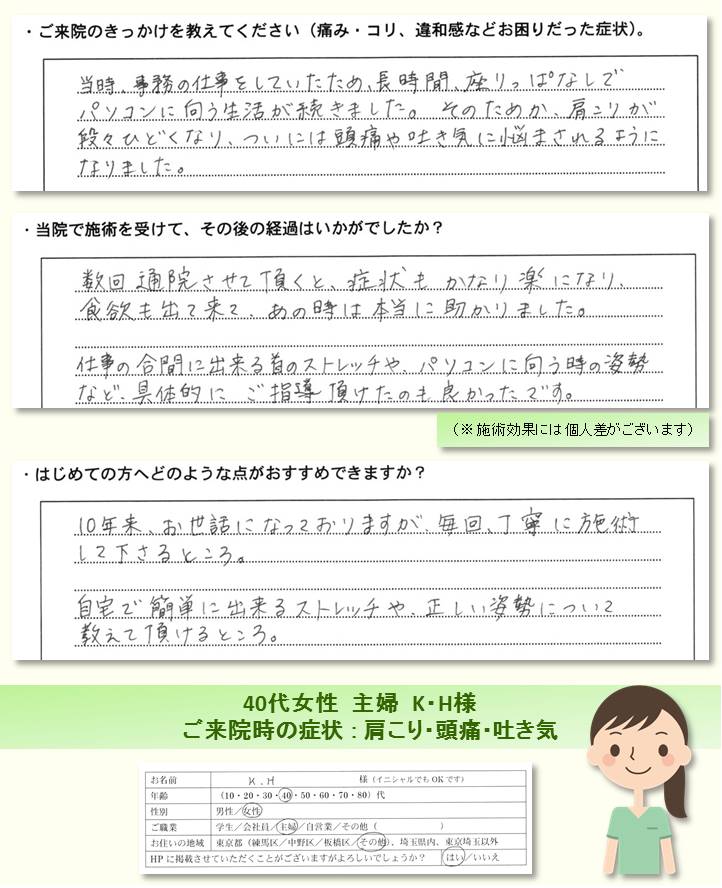 ・ご来院のきっかけを教えてください（痛み・コリ、違和感などお困りだった症状）。
当時、事務の仕事をしていたため、長時間、座りっぱなしで
パソコンに向う生活が続きました。そのためか、肩こりが
段々ひどくなり、ついには頭痛や吐き気に悩まされるように
なりました。
・当院で施術を受けて、その後の経過はいかがでしたか？
数回通院させて頂くと、症状もかなり楽になり、
食欲も出て来て、あの時は本当に助かりました。
仕事の合間に出来る首のストレッチや、パソコンに向う時の姿勢
など、具体的にご指導頂けたのも良かったです。
（※施術効果には個人差がございます）
・はじめての方へどのような点がおすすめできますか？
10年来、お世話になっておりますが、毎回、丁寧に施術
して下さるところ。
自宅で簡単に出来るストレッチや、正しい姿勢について
教えて頂けるところ。
40代女性 主婦 K・H様
ご来院時の症状：肩こり・頭痛・吐き気
お名前 K.H 様（イニシャルでもOKです）
年齢 （10・20・30・40・50・60・70・80）代
性別 男性／女性
ご職業 学生／会社員／主婦／自営業／その他（ ）
お住いの地域 東京都（練馬区／中野区／板橋区／その他）、埼玉県内、東京埼玉以外
HPに掲載させていただくことがございますがよろしいでしょうか？ はい／いいえ